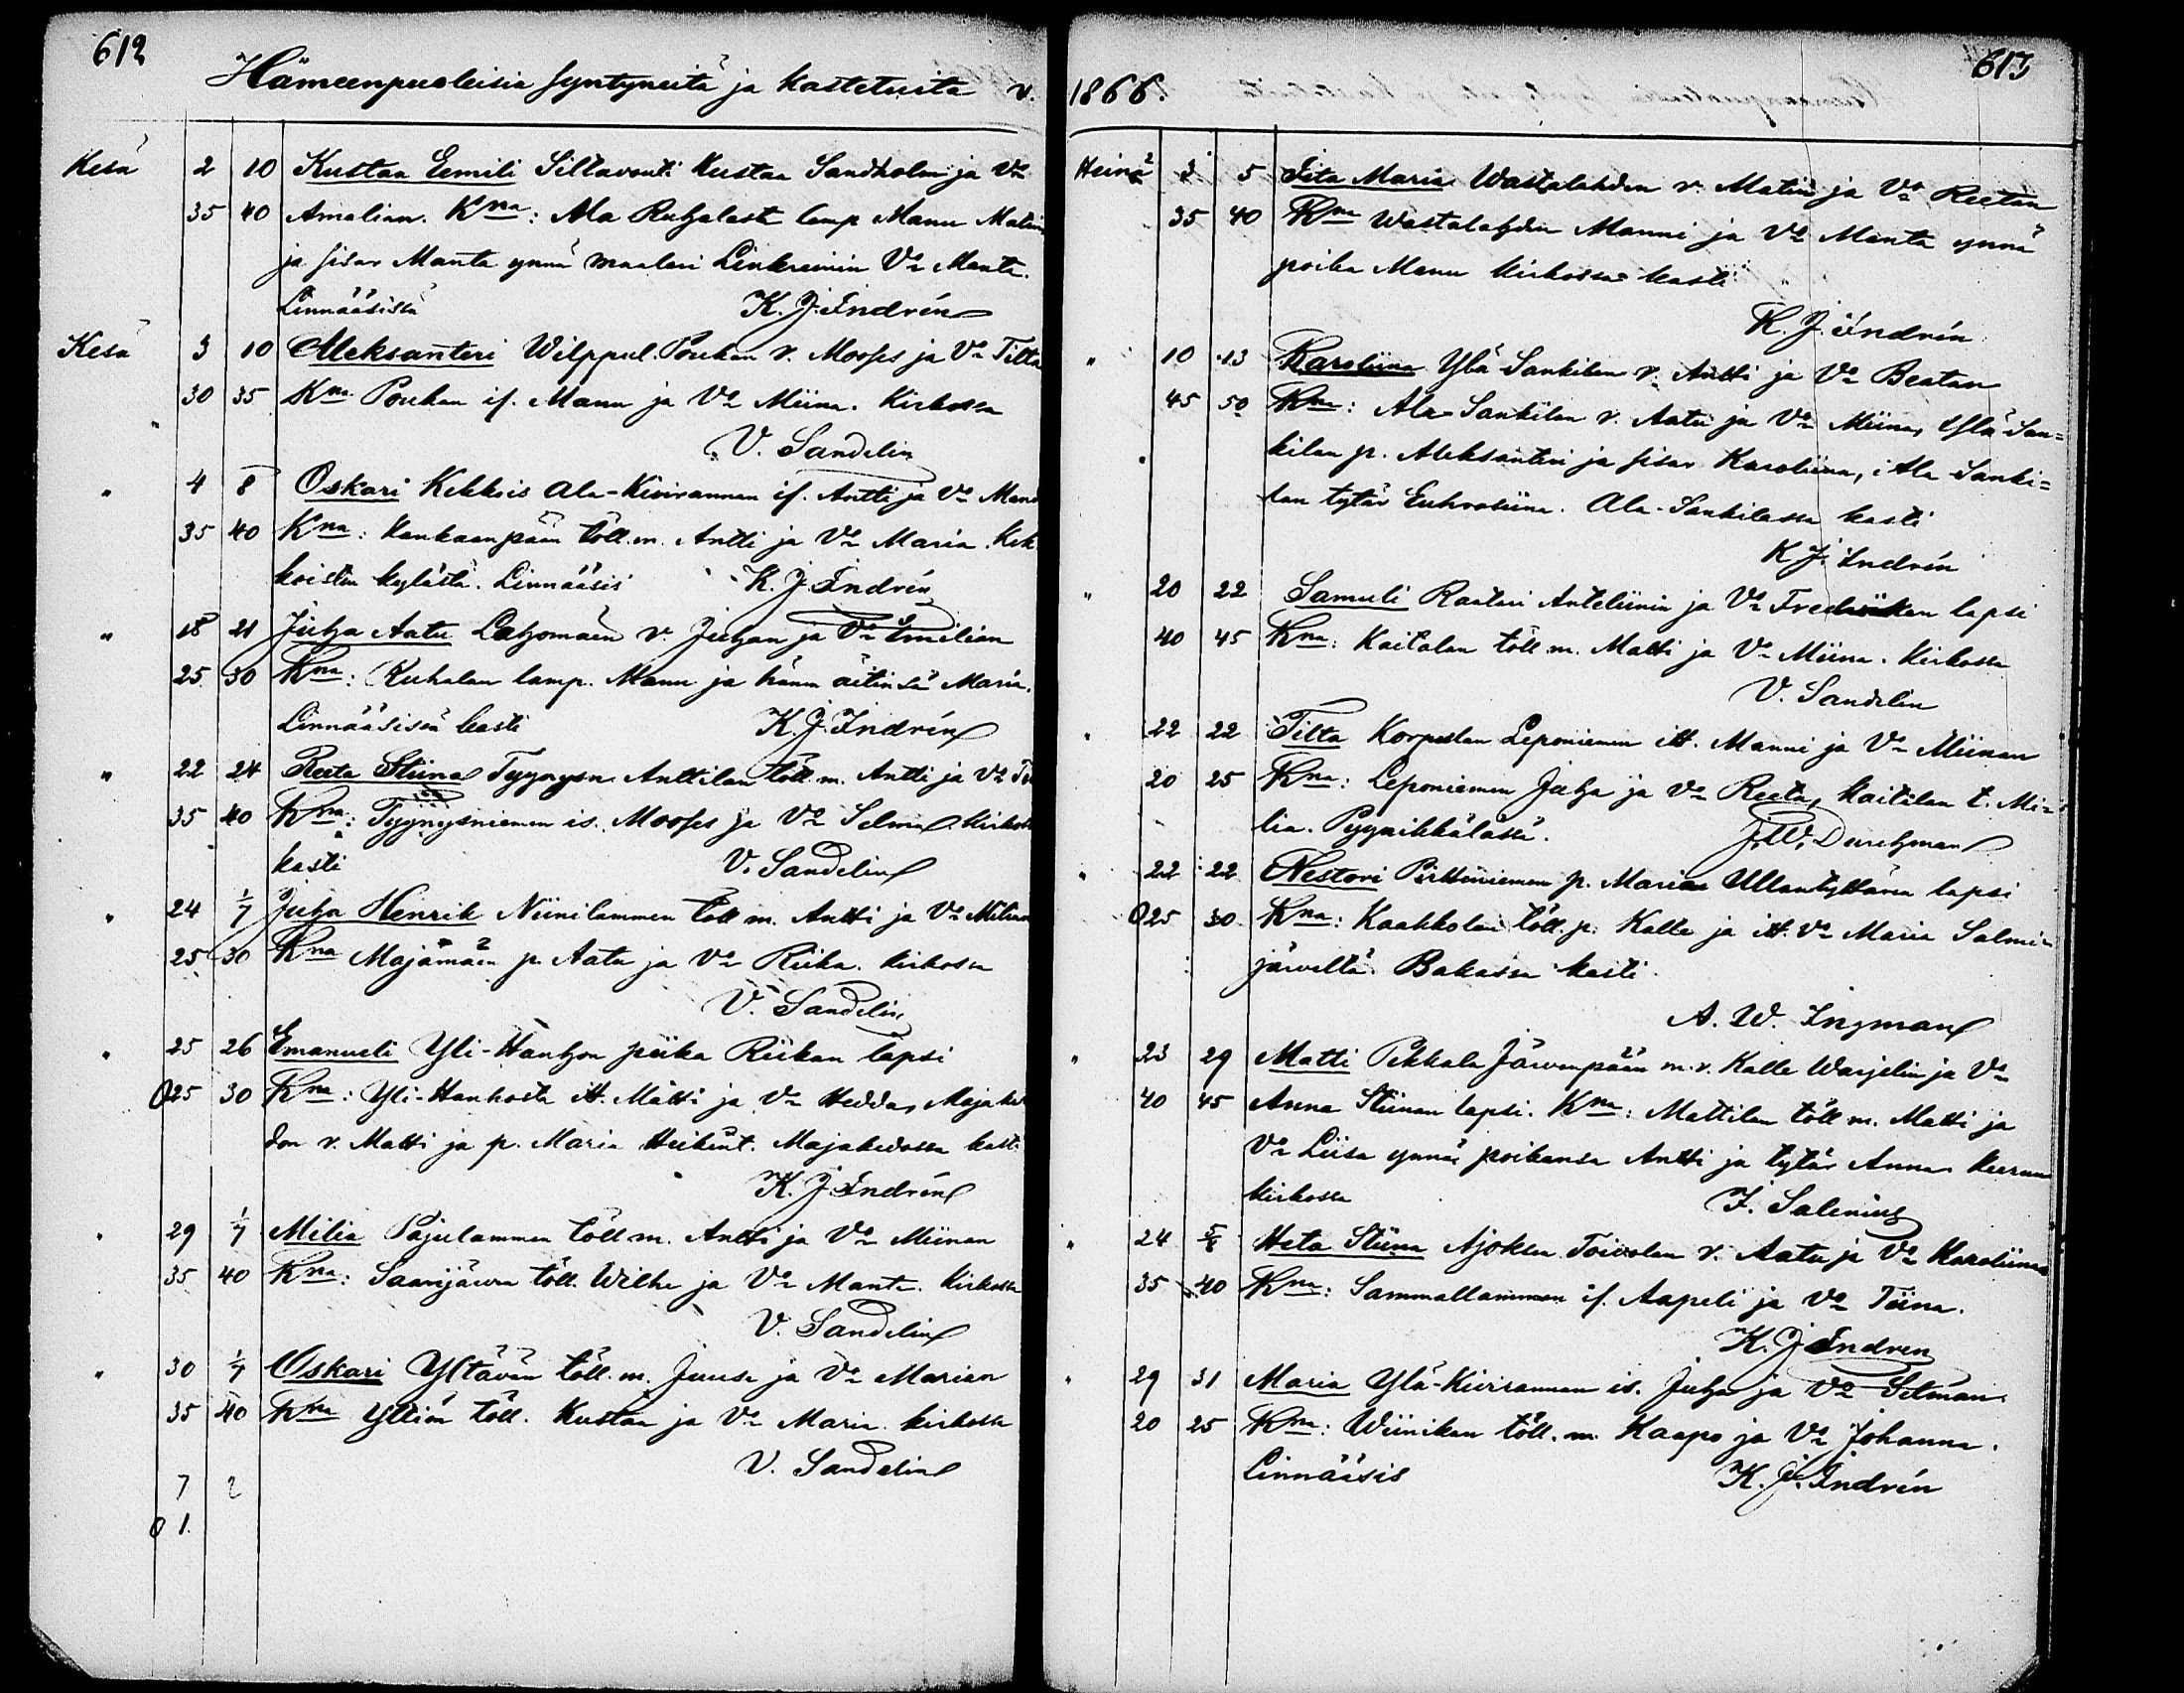 612
Hämeenpuoleisia syntyneitä ja kastetuita v.
Kesä 2 10 Kustaa Eemili Siltavouti Kustaa Sandholm ja Vo
35 40 Amalian. Kna: Ala Ruhalast lamp Manu Matin
ja sisar Manta ynnä maalari Vo Manta.
Linnääsissä K. J. Indrén
Kesä 3 10 Aleksanteri Wilppul. Poukan v. Mooses ja Vo Tilta
30 35 Kna Poukan is. Manu ja Vo Miina. Kirkossa
V. Sandelin
" 4 8 Oskari Kekkois Ala-Kivirannan is. Antti ja Vo
35 40 Kna: Kankaanpään töll.m. Antti ja Vo Maria. Kek
koisten kylästä. Linnääsis K. J. Indrén
" 18 21 Juha Aatu Lahomäen v. Juhan ja Vo Emilian
25 30 Kna: Ruhalan lamp. Manu ja hänen äitinsä Maria.
Linnääsissä kasti K. J. Indrén
" 22 24 Reeta Stiina Tyynysn. Anttilan töll m. Antti ja Vo
35 40 Kna: Tyynysniemen is. Mooses ja Vo Selma kirkoss
kasti V. Sandelin
" 24 1/7 Juha Henrik Niinilammen töll m. Antti ja Vo
25 30 Kna Majamäen p. Aatu ja Vo Riika. kirkossa
V. Sandelin
" 25 26 Emanueli Yli-Hanhon piika Riikan lapsi
O25 30 Kna: Yli-Hanhosta itt. Matti ja Vo Hedda, Majake
don v. Matti ja p. Maria Heikint. Majakedossa kasti
K. J. Indrén
" 29 1/7 Milia Pajulammen töll m. Antti ja Vo Miinan
35 40 Kna: Saarijärven töll. Wilhe ja Vo Manta. Kirkossa
V. Sandelin
" 30 1/7 Oskari Yltävän töll. m. Juuse ja Vo Marian
35 40 Kna töll. Kustaa ja Vo Maria. kirkossa
V. Sandelin
7 2
O 1.
613
1866.
Heinä 3 5 Iita Maria Wastalahden v. Matin ja Vo Reetan
35 40 Kna Wastalahden Manni ja Vo Manta ynnä
poika Manu kirkossa kasti
K. J. Indrén
" 10 13 Karoliina Ylä Sankilan v. Antti ja Vo Beatan
45 50 Kna: Ala-Sankilan v. Aatu ja Vo Miina, Ylä-San=
kilan p. Aleksanteri ja sisar Karoliina, Ala Sanki=
lan tytär Euhrosiina. Ala-Sankilassa kasti
K J. Indrén
" 20 22 Samuli Raatari Anteliinin ja Vo Fredriikan lapsi
40 45 Kna: Kaitalan töll m. Matti ja Vo Miina. Kirkossa
V. Sandelin
" 22 22 Tilta Korpulan Leponiemen itt. Manni ja Vo Miinan
20 25 Kna: Leponiemen Juha ja Vo Reeta, Kaitilan t. Mi=
lia. Pyynikkälässä. J. W. Durchman
" 22 22 Nestori Pirttiniemen p. Marian Ullantyttären lapsi
O25 30 Kna: Kaakkolan töll. p. Kalle ja itt. Vo Maria Salmin
järveltä. Bakassa kasti.
A. W. Ingman
" 23 29 Matti Pekkala Järvenpään m.v. Kalle Warjelin ja Vo
40 45 Anna Stiinan lapsi. Kna: Mattilan töll m. Matti ja
Vo Liisa ynnä poikansa Antti ja tytär Anna Keuruun
kirkossa F. Salenius
" 24 5/8 Heta Stiina Ajoksen Toivolan v. Aatu ja Vo Karoliinan
35 40 Kna: Sammallammen is. Aapeli ja Vo Tiina.
K. J. Indren
" 29 31 Maria Ylä-Kivirannan is. Juha ja Vo Selman.
20 25 Kna: Wiinikan töll. m. Kaapo ja Vo Johanna.
Linnääsis K. J. Indrén